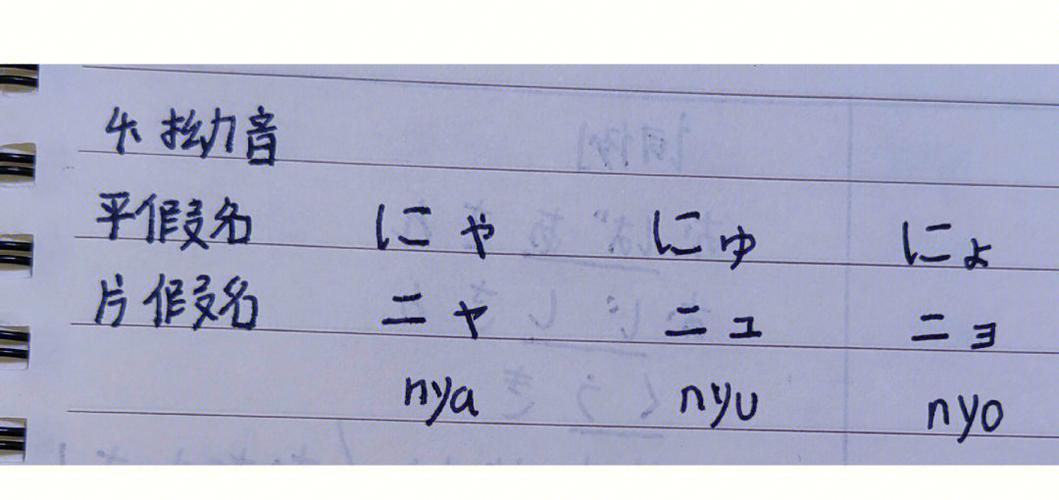 拗音
平假名 にゃ にゅ にょ
片假名 ニャ ニュ ニョ
nya nyu nyo